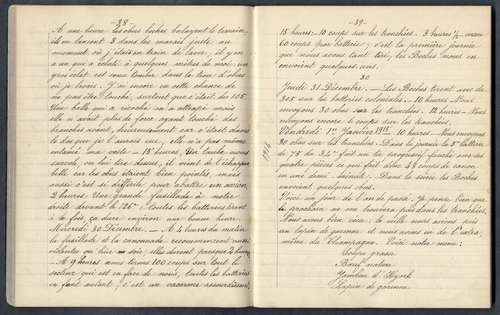 - 38 -
A une heure les obus boches balayent le terrain,
ils en lancent 3 dans les marais juste au
moment où j'étais en train de laver, il y en
a un qui a éclaté à quelques mètres de moi, un
gros éclat est venu tomber dans le trou d'obus
où je lavais. J'ai encore eu cette chance de
ne pas être touché, surtout que c'était du 105.
Une balle qui a ricoché m'a attrapé mais
elle n'avait plus de force ayant touché des
branches avant, heureusement car c'était dans
le dos que je l'aurais eue, elle n'a pas même
entamé ma veste. 18 heures, Un taube nous
survole, on lui tire dessus, il vient de l'échapper
belle car les obus étaient bien pointés, mais
aussi c'est si difficile pour abattre un avion.
2 heures. Une grande fusillade à notre
droit devant le 12e, toutes les batteries tirent
à la fois, ça dure environ une bonne heure.
Mercredi 30 Décembre. - A 4 heures du matin
la fusillade et la canonnade recommencent
violente au hier soir, elles durent presque 2 heures
- A 9 heures nous tirons 100 coups sur tout le
secteur qui est en face de nous, toutes les batteries
en font autant, c'est un vacarme assourdissant,
- 39 -
15 heures. 10 coups sur les tranchées. 3 heures 1/2 nous
60 coups par batterie, c'est la première journée
que nous avons tant tiré, les Boches nous en
envoient quelques uns.
30
Jeudi 31 Décembre. - Les Boches tirent avec du
305 sur les batteries coloniales. - 10 heures - Nous
envoyons 30 obus sur les tranchées. 14 heures - Nous
envoyons encore 6 coups sur les tranchées.
1915
Vendredi 1er Janvier 1915. - 10 heures - Nous envoyons
30 obus sur les tranchées. Dans la journée la 5e batterie
de 75 du 34e fait un tir progressif fauché avec ses
quatre pièces ce qui fait plus de coups de canon
en une demi-minute. Dans la soirée les Boches
envoient quelques obus.
Voici un jour de l'an de passé, je pense bien que
le prochain ne me trouvera pas dans les tranchées.
Nous avons bien vécu, la veille nous avons pris
un lapin de garenne et nous avons eu de l'extra,
même du Champagne. Voici notre menu:
Soupe grasse
Bœuf nature
Jambon d'York
Lapin de garenne